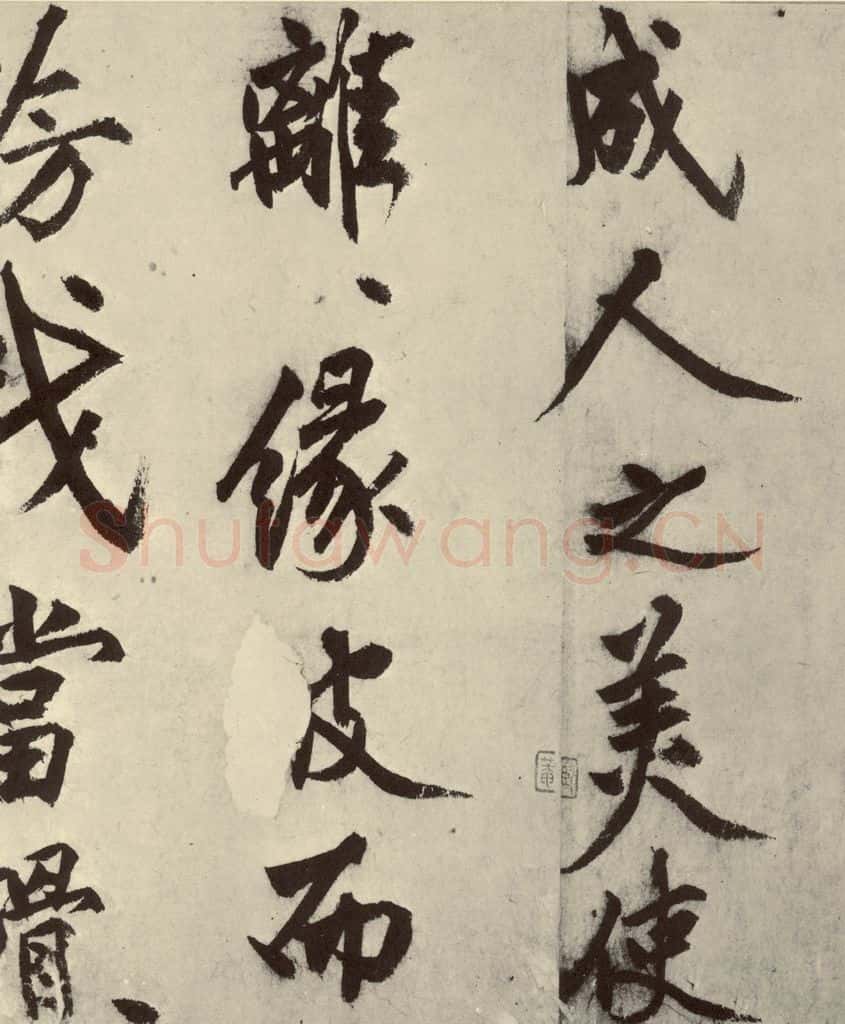 成人之美使
離、緣皮而
當骨、
Shufawang.CN